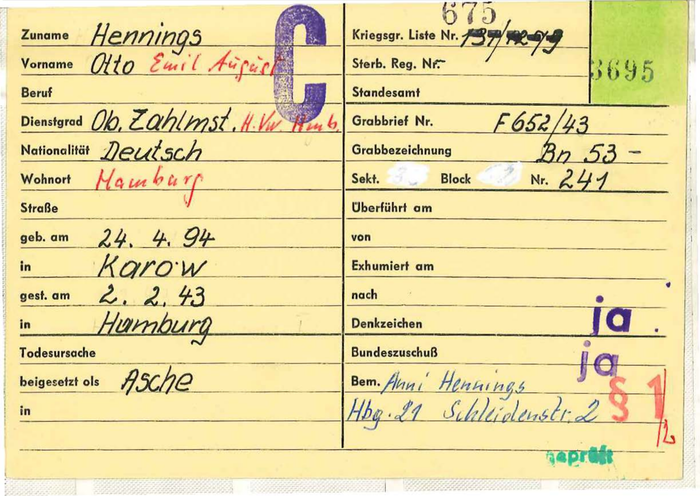 675
C
Zuname Hennings
Vorname Otto Emil August
Beruf
Dienstgrad Ob. Zahlmst. H.Vw. Hmb.
Nationalität Deutsch
Wohnort Hamburg
Straße
geb. am 24. 4. 94
in Karow
gest. am 2. 2. 43
in Hamburg
Todesursache
beigesetzt als Asche
in
Kriegsgr. Liste Nr.
Sterb. Reg. Nr.
3695
Standesamt
Grabbrief Nr. F 652/43
Grabbezeichnung Bn 53 -
Sekt. Block Nr. 241
Überführt am
von
Exhumiert am
nach
Denkzeichen ja
Bundeszuschuß ja
Bem. Anni Hennings
Hbg. 21 Schleidenstr. 2
§ 1/2
geprüft